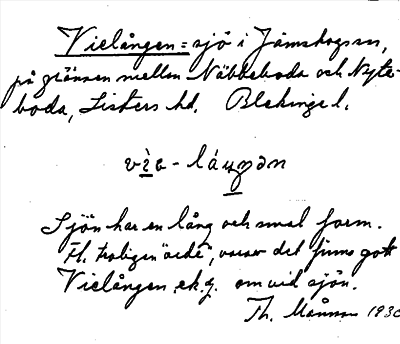 Vielången = sjö i Jämshögs sn,
på gränsen mellan Näbbeboda och Nyte-
boda, Listers hd. Blekinge l.
vìa - láŋgən
Sjön har en lång och smal form.
Fl. troligen "vide", varav det finns gott
Vielången, ek.g. om vid sjön.
Th. Månsson 1930